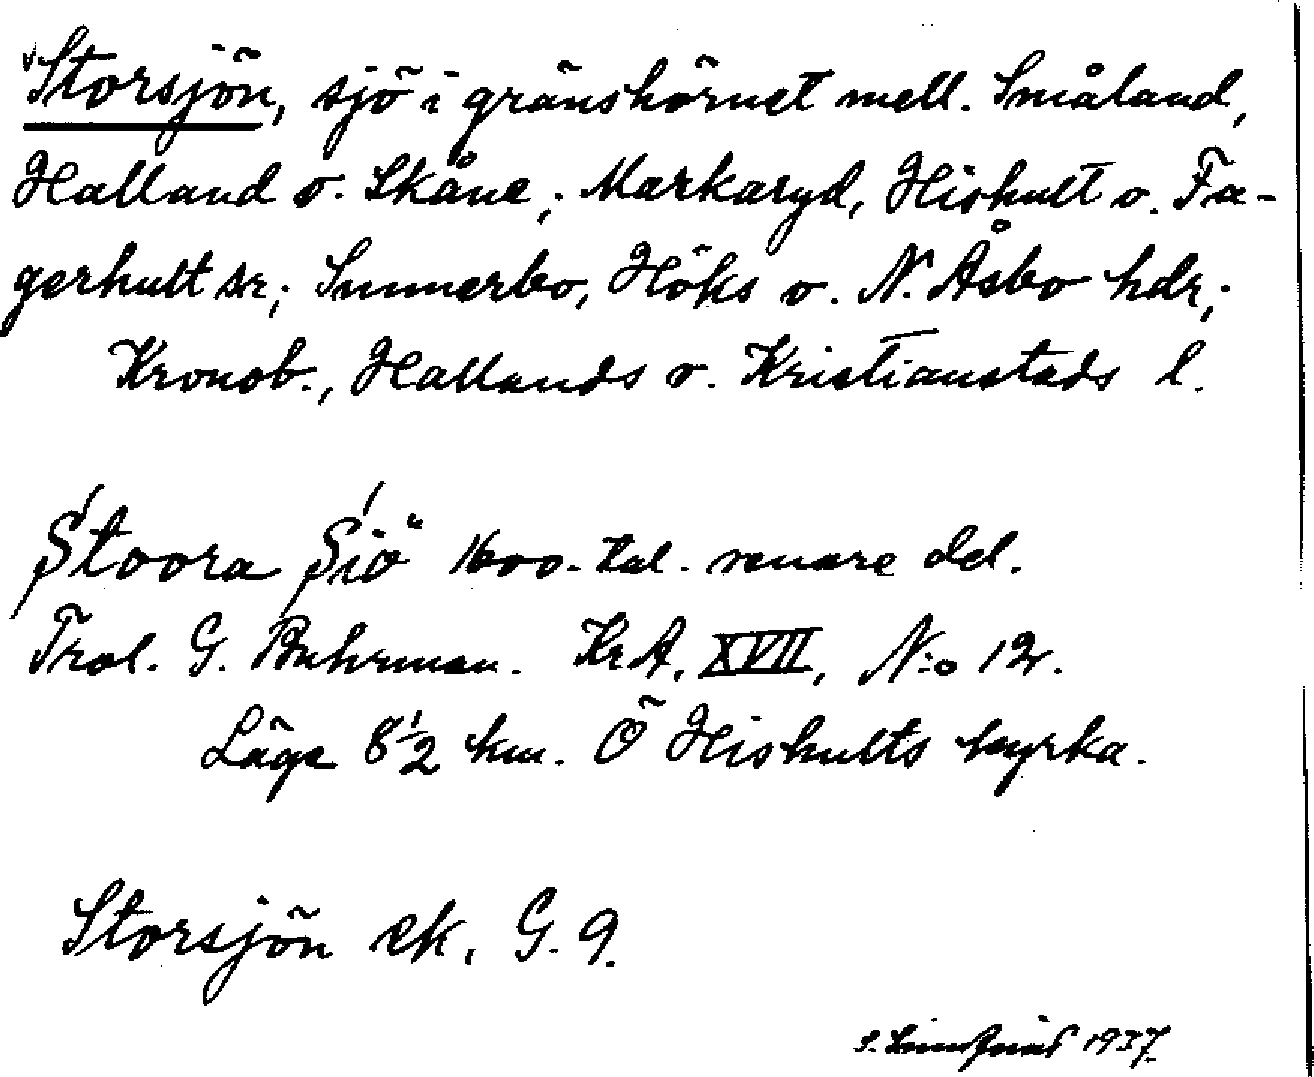 Storsjön, sjö i gränshörnet mell. Småland,
Halland o. Skåne; Markaryd, Hishult o. Fa-
gerhult sr; Sunnerbo, Höks o. N. Åsbo hdr;
Kronob., Hallands o. Kristianstads l.
Stoora Siö 1600-tal. senare del.
Trol. G. Buhrman. Kr A, XVII, N:o 12.
Läge 8½ km. Ö Hishults kyrka.
Storsjön ek. G. 9.
1937.